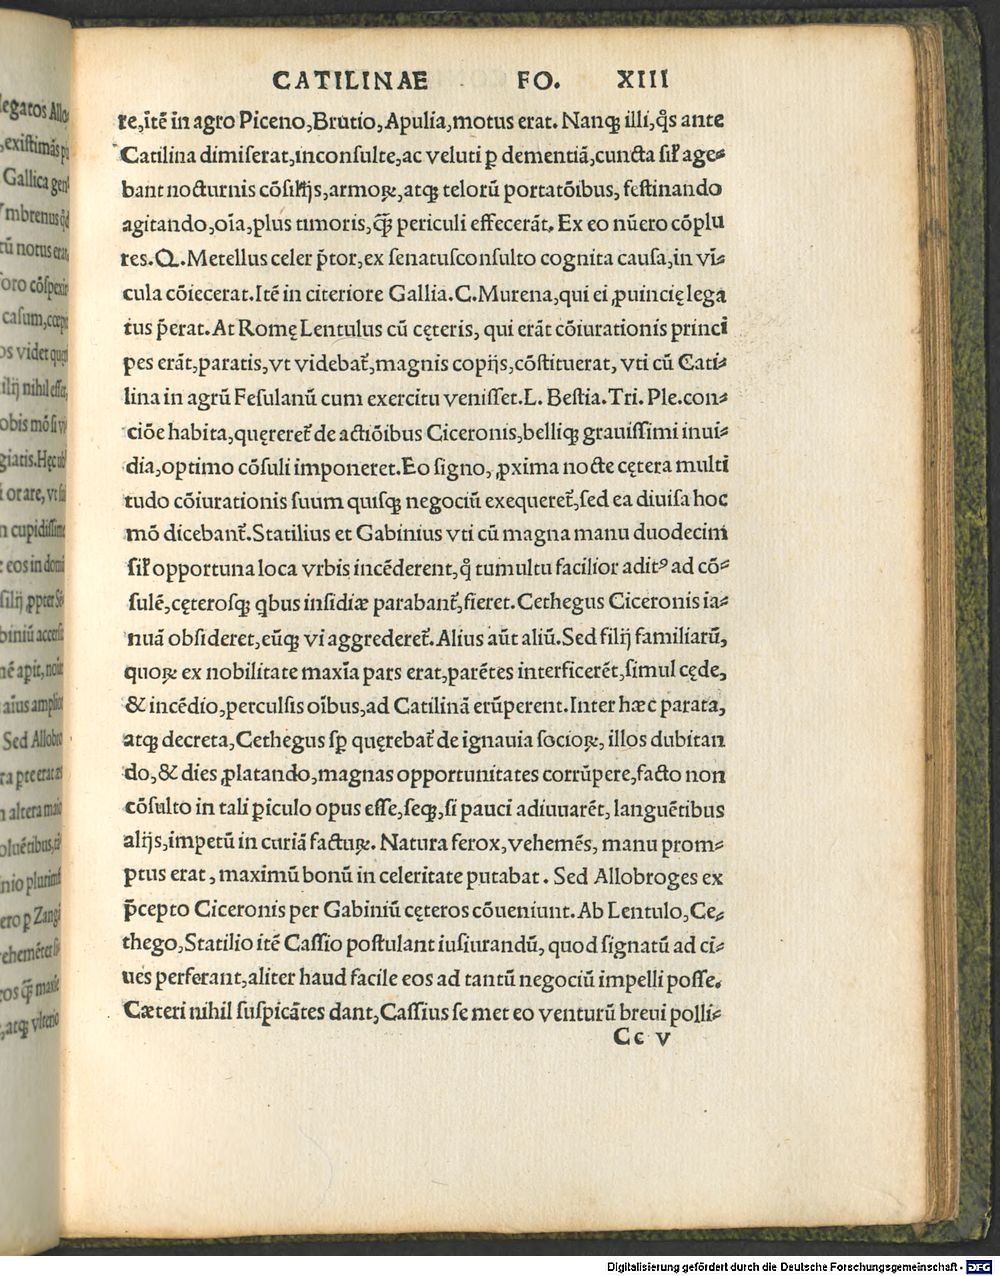 CATILINAE FO. XIII
re,itē in agro Piceno,Brutio,Apulia,motus erat. Nanqꝫ illi,q̊s ante
Catilina dimiserat,inconsulte,ac veluti ꝑ dementiā,cuncta sił age⸗
bant nocturnis cōsilijs,armoꝝ,atqꝫ telorū portatōibus, festinando
agitando,oīa,plus timoris,q̄ꝫ periculi effecerāt. Ex eo nūero cōplu
res.Q.Metellus celer p̄tor,ex senatusconsulto cognita causa,in vī⸗
cula cōiecerat.Itē in citeriore Gallia.C.Murena,qui ei ꝓuincię lega
tus p̄erat.At Romę Lentulus cū cęteris, qui erāt cōiurationis princi
pes erāt,paratis,vt videbat᷑,magnis copijs,cōstituerat, vti cū Cati⸗
lina in agrū Fesulanū cum exercitu venisset.L. Bestia.Tri. Ple.con⸗
ciōe habita,quęreret᷑ de actiōibus Ciceronis,belliqꝫ grauissimi inui⸗
dia,optimo cōsuli imponeret.Eo signo, ꝓxima nocte cętera multi
tudo cōiurationis suum quisqꝫ negociū exequeret᷑,sed ea diuisa hoc
mō dicebant᷑.Statilius et Gabinius vti cū magna manu duodecim
sił opportuna loca vrbis incēderent,q̊ tumultu facilior aditꝰ ad cō⸗
sulē,cęterosqꝫ qbus insidiæ parabant᷑,fieret.Cethegus Ciceronis ia⸗
nuā obsideret,eūqꝫ vi aggrederet᷑.Alius aūt aliū.Sed filij familiarū,
quoꝝ ex nobilitate maxīa pars erat,parētes interficerēt,simul cęde,
& incēdio,perculsis oībus,ad Catilinā erūperent.Inter hæc parata,
atqꝫ decreta,Cethegus sꝑ quęrebat᷑ de ignauia socioꝝ, illos dubitan
do,& dies ꝓlatando,magnas opportunitates corrūpere,facto non
cōsulto in tali ꝑiculo opus esse,seqꝫ,si pauci adiuuarēt, languētibus
alijs,impetū in curiā facturꝝ. Natura ferox,vehemēs, manu prom⸗
ptus erat, maximū bonū in celeritate putabat. Sed Allobroges ex
p̄cepto Ciceronis per Gabiniū cęteros cōueniunt. Ab Lentulo,Ce⸗
thego,Statilio itē Cassio postulant iusiurandū, quod signatū ad ci⸗
ues perferant,aliter haud facile eos ad tantū negociū impelli posse.
Cæteri nihil suspicātes dant,Cassius se met eo venturū breui polli⸗
Cc v
Digitalisierung gefördert durch die Deutsche Forschungsgemeinschaft - DFG